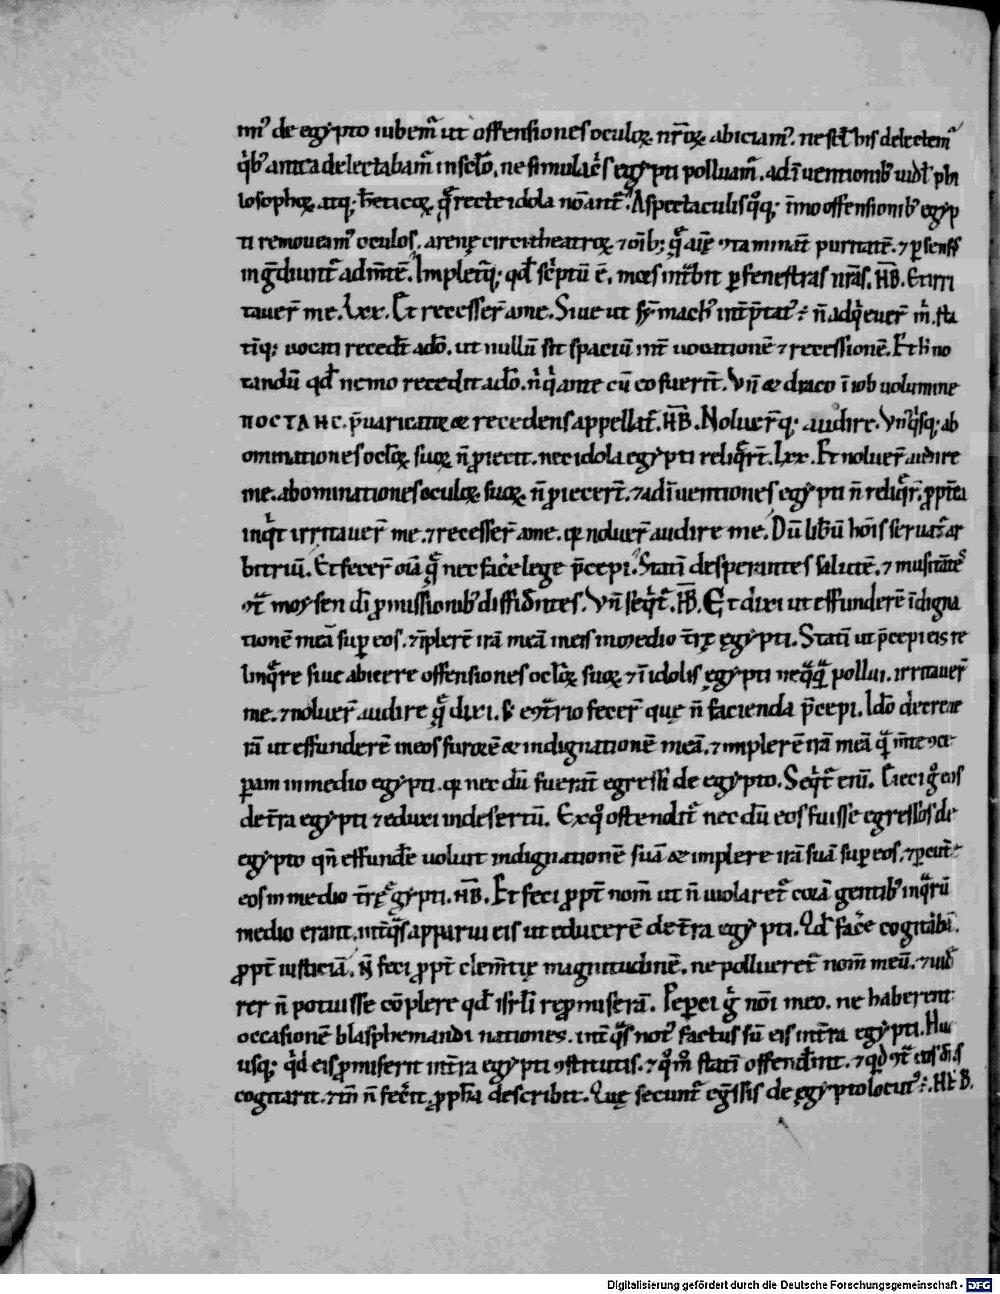 m᷒ de egypto iubem̃ ut offensiones oculoꝝ nr̄oꝝ abiciam᷒. ne his delectem̃
qͥb᷒ antea delectabam̃ in sclo. ne simulacͥs egypti polluam̃. adīuentionib᷒ uidꝉ phi
losophoꝝ. atq; hereticoꝝ. q̄ recte idola noāntͬ. A spectaculis qͦq; īmo offensionib᷒ egyp
ti remoueam᷒ oculos. arenę circi theatroꝝ ⁊ oīb; q̄ aīę ꝯtaminat̄ puritatē. ⁊ ꝑ sensꝰ
in g̃diuntͬ ad m̄tē. Impletͬq; qd̄ scͥptū ē. mors intͬbit ꝑ fenestras uras. HB. Et irri
tauer̄ me. Lxx. Et recesser̄ a me. Siue ut sȳmach᷒ int̄p̄tatͬ: n̄ adqͥeuer̄ m̄. sta
tīq; uocati recedt̄ a dō. ut nullū sit spaciū int̄ uocationē ⁊ recessionē. Et h̄ no
tandū qd̄ nemo recedit a dō. n̄ qͥ ante cū eo fuerit̄. Vn̄ & draco ī iob uolumine
ΠΟCΤΑΗC. p̄uaricator & recedens appellatͬ. HB. Noluer̄q; audire. Vn᷒qͥsq; ab
ominationes oclōꝝ suoꝝ n̄ ꝓiecit. nec idola egypti reliqͥrt̄. Lxx. Et noluer̄ audire
me. abominationes oculoꝝ suoꝝ n̄ ꝓiecert̄. ⁊ adīuentiones egypti n̄ reliqͥr̄. ꝓpt̄ea
inqͥt irritauer̄ me. ⁊ recesser̄ a me. qꝛ noluer̄ audire me. Dū libū hoīs seruatͬ ar
bitriū. Et fecer̄ oīa q̄ nec facͥe lege p̄cepi. Statī desperantes salutē. ⁊ musitātes
ꝯt̄ moysen dī ꝓmissionib᷒ diffidn̄tes. Vn̄ seqͥtͬ. HB. Et dixi ut effunderē īdigna
tionē meā suꝑ eos. ⁊ īplerē irā meā in eis in medio tr̄ę ęgypti. Statī ut p̄cepi eis re
linqͣre siue abicere offensiones oclōꝝ suoꝝ ⁊ ī idolis ęgypti neqͣqͣ pollui. irritauer̄
me. ⁊ noluer̄ audire q̄ dixi. s; ꝯt̄rio fecer̄ que n̄ facienda p̄cepi. Idō decreue
rā ut effunderē in eos furorē & indignationē meā. ⁊ implerē irā meā q̄ m̄te ꝯce
ꝑam in medio egypti. qꝛ nec dū fuerāt egressi de egypto. Seqͥtͬ enī. Eieci gͦ eis
de tr̄ra egypti ⁊ eduxi in desertū. Ex qͦ ostenditͬ nec dū eos fuisse egressos de
egypto qn̄ effundē uoluit indignationē suā & implere irā suā suꝑ eos. ⁊ ꝑcut̄e
eos in medio tr̄ę ęgypti. HB. Et feci ꝓpt̄ nom̄ ut n̄ uiolaretͬ corā gentib᷒ in qͣrū
medio erant. int̄ qͣs apparui eis ut educerē de tr̄ra egypti. Qd̄ facͥe cogitābā.
ꝓpt̄ iusticiā. n̄ feci ꝓpt̄ clem̄tię magnitudinē. ne polluretͬ nom̄ meū. ⁊ uidē
rer n̄ potuisse cōplere qd̄ isrłi repromiserā. Peꝑci gͦ nōi meo. ne haberent
occasionē blasphemandi nationes. int̄ qͣs not᷒ factus sū eis in tr̄ra egypti. Huc
usq; qͥd eis ꝓmiserit in tr̄ra egypti ꝯstitutis. ⁊ qͦm̊ statī offendīnt. ⁊ qd̄ ꝯt̄ eos d̄s
cogitarit. ⁊ tn̄ n̄ fecͥit. ꝓphā describit. Quę secunt̄ egs̄sis de ęgypto locut᷒:. HB.